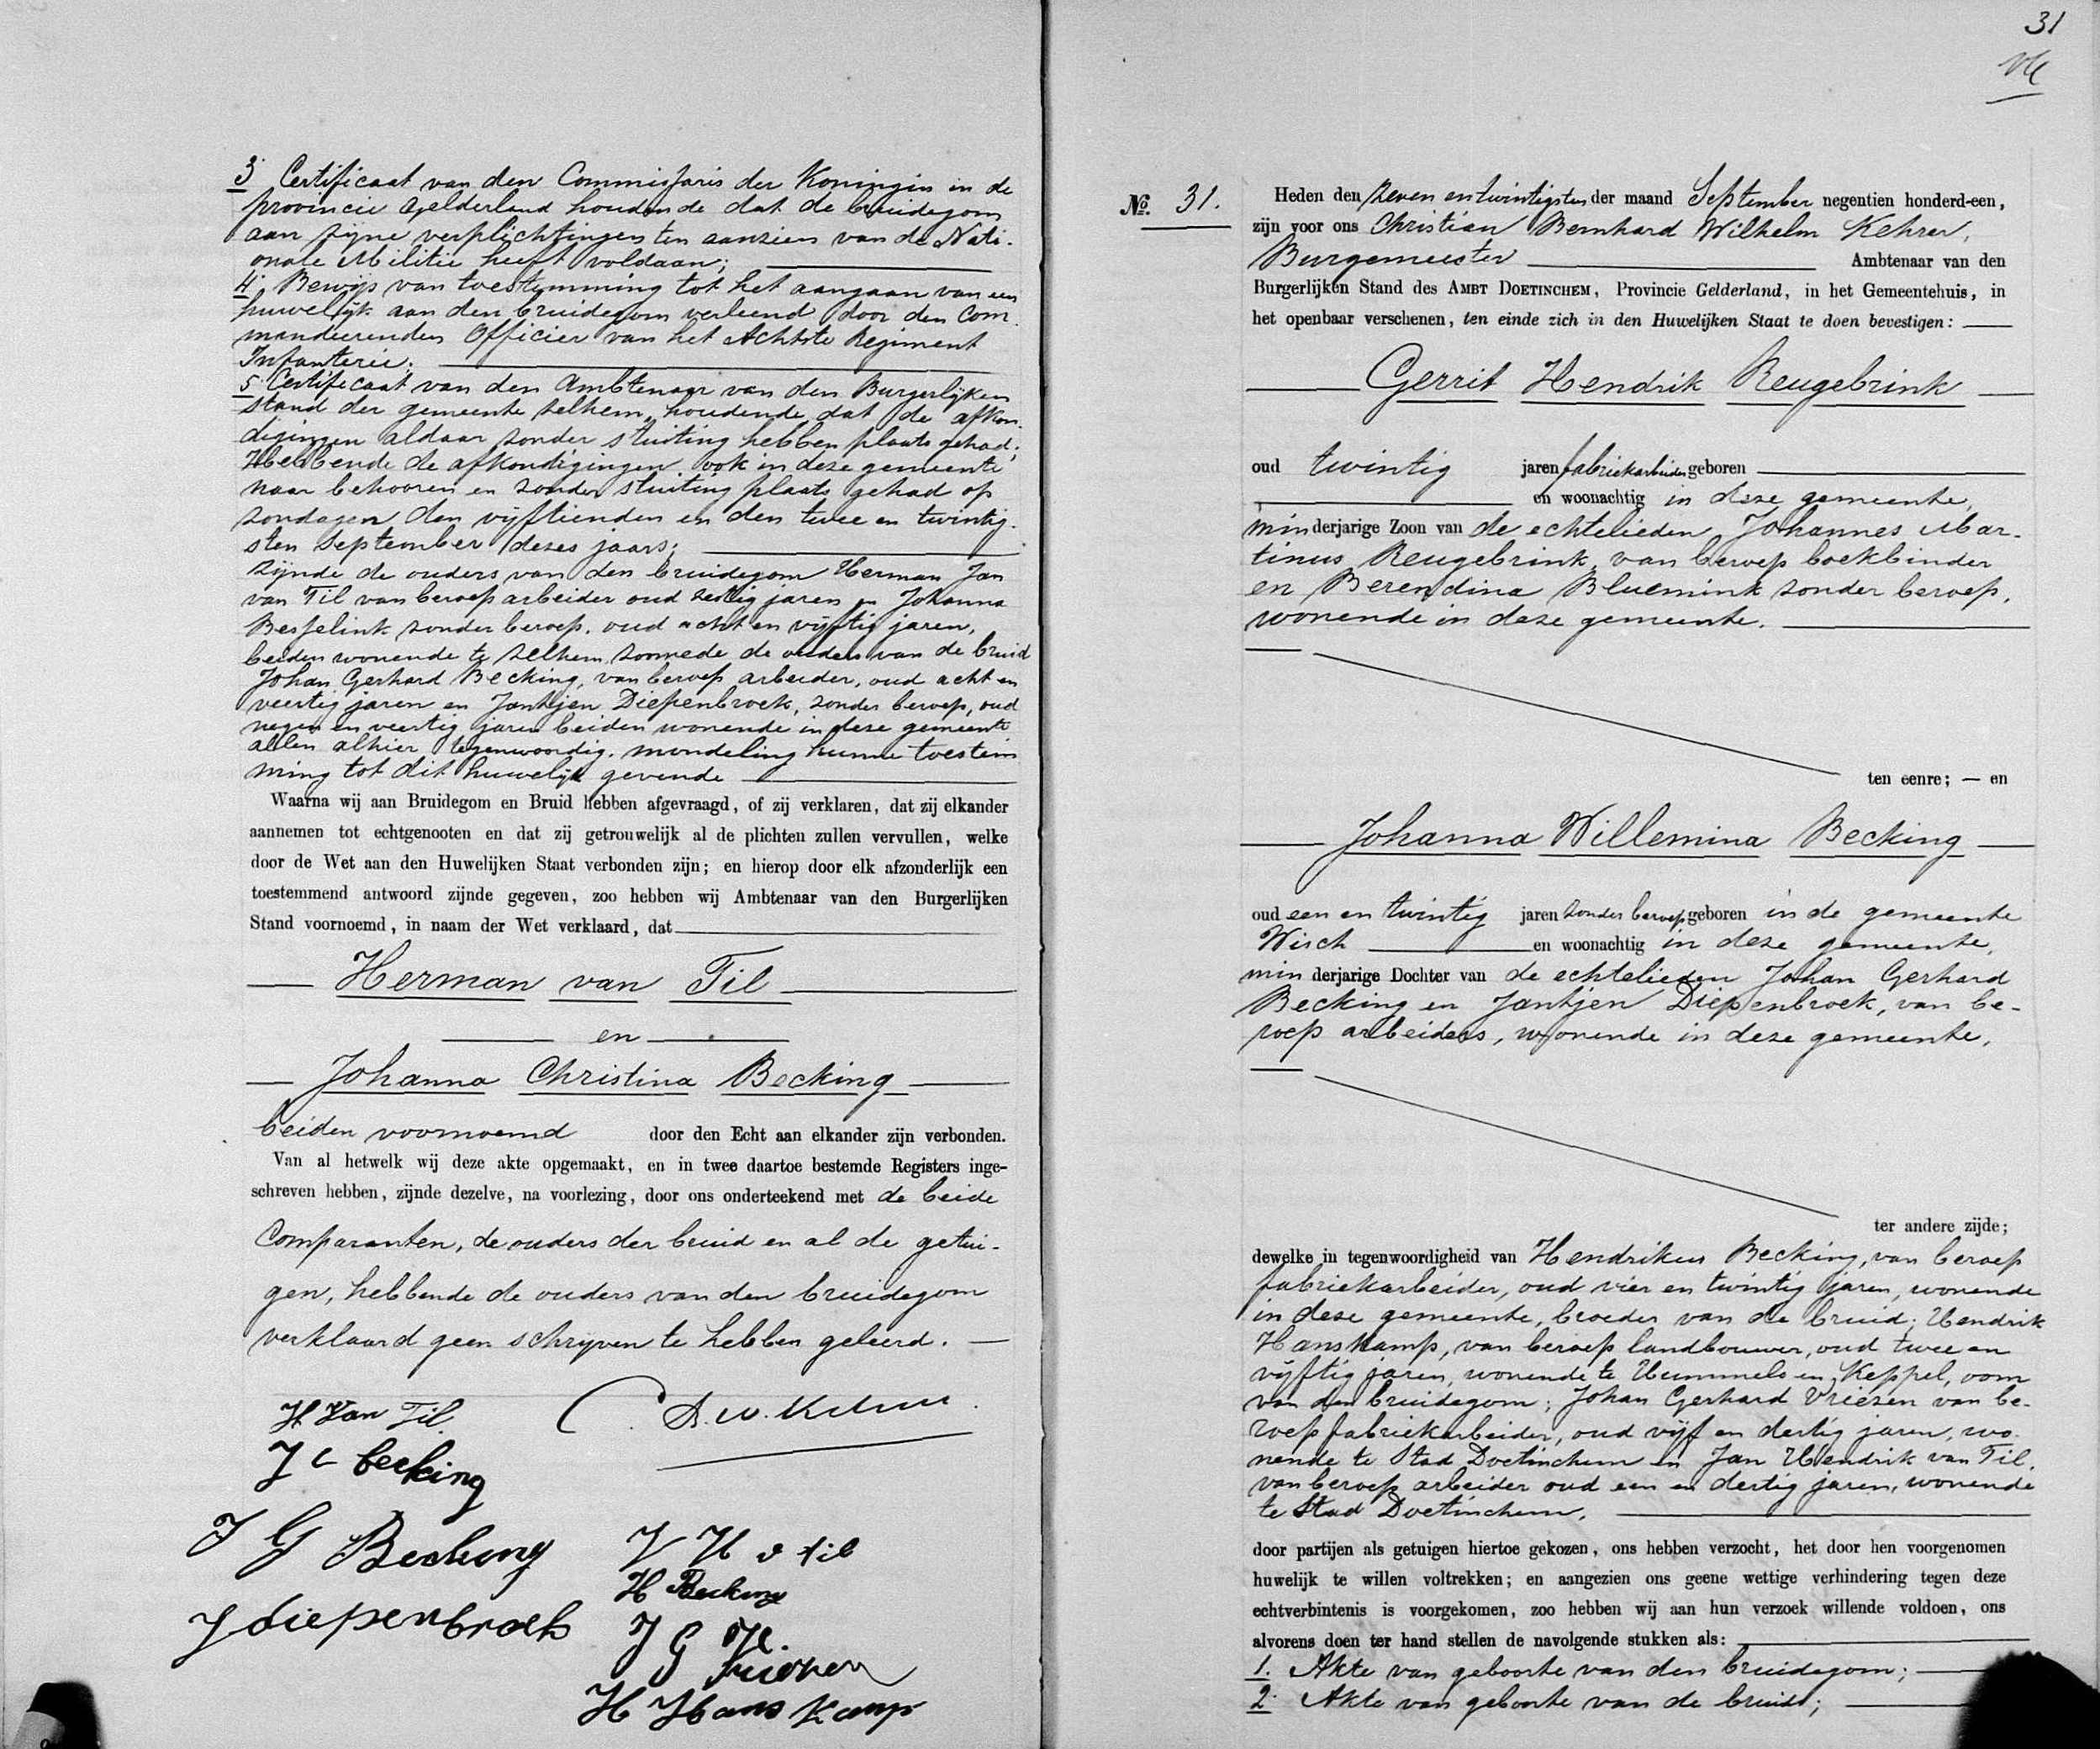 3 Certificaat van den Commissaris der Koningin in de
provincie Gelderland houdende dat de bruidegom
aan zijne verplichtingen ten aanzien van de Nati-
onale Militie heeft voldaan;
4. Bewijs van toestemming tot het aangaan van een
huwelijk aan den bruidegom verleend door den Com
mandeerenden Officier van het Achtste Regiment
Infanterie.
5. Certificaat van den Ambtenaar van den Burgerlijken
stand der gemeente Zelhem, houdende dat de afkon-
digingen aldaar zonder stuiting hebben plaats gehad;
Hebbende de afkondigingen ook in deze gemeente
naar behooren en zonder stuiting plaats gehad op
zondagen den vijftienden en den twee en twintig-
sten September dezes jaars;
Zijnde de ouders van den bruidegom Herman Jan
van Til van beroep arbeider oud zestig jaren en Johanna
Besselink zonder beroep, oud acht en vijftig jaren,
beiden wonende te Zelhem, zoomede de ouders van de bruid
Johan Gerhard Becking, van beroep arbeider, oud acht en
veertig jaren en Jantjen Diepenbroek, zonder beroep, oud
negen en veertig jaren beiden wonende in deze gemeente
allen alhier tegenwoordig, mondeling hunne toestem
ming tot dit huwelijk gevende
Waarna wij aan Bruidegom en Bruid hebben afgevraagd, of zij verklaren, dat zij elkander
aannemen tot echtgenooten en dat zij getrouwelijk al de plichten zullen vervullen, welke
door de Wet aan den Huwelijken Staat verbonden zijn; en hierop door elk afzonderlijk een
toestemmend antwoord zijnde gegeven, zoo hebben wij Ambtenaar van den Burgerlijken
Stand voornoemd, in naam der Wet verklaard, dat
Herman van Til
en
Johanna Christina Becking
beiden voornoemd door den Echt aan elkander zijn verbonden.
Van al hetwelk wij deze akte opgemaakt, en in twee daartoe bestemde Registers inge-
schreven hebben, zijnde dezelve, na voorlezing, door ons onderteekend met de beide
Comparanten, de ouders der bruid en al de getui-
gen, hebbende de ouders van den bruidegom
verklaard geen schrijven te hebben geleerd.
H Van Til.
C. B. W. Kehrer
J C becking
J G Becking
J H v til
H Becking
J diepenbroek
J G H. Vriezen
H Hans Kamp
31
No. 31.
Heden den zeven en twintigsten der maand September negentien honderd-een,
zijn voor ons Christian Bernhard Wilhelm Kehrer,
Burgemeester Ambtenaar van den
Burgerlijken Stand des AMBT DOETINCHEM, Provincie Gelderland, in het Gemeentehuis, in
het openbaar verschenen, ten einde zich in den Huwelijken Staat te doen bevestigen:
Gerrit Hendrik Reugebrink
oud twintig jaren fabriekarbeider geboren
en woonachtig in deze gemeente,
minderjarige Zoon van de echtelieden Johannes Mar-
tinus Reugebrink, van beroep boekbinder
en Berendina Bluemink zonder beroep,
wonende in deze gemeente.
ten eenre; — en
Johanna Willemina Becking
oud een en twintig jaren zonder beroep geboren in de gemeente
Wisch en woonachtig in deze gemeente,
min derjarige Dochter van de echtelieden Johan Gerhard
Becking en Jantjen Diepenbroek, van be-
roep arbeiders, wonende in deze gemeente,
ter andere zijde;
dewelke in tegenwoordigheid van Hendrikus Becking, van beroep
fabriekarbeider, oud vier en twintig jaren, wonende
in deze gemeente, broeder van de bruid; Hendrik
Hanskamp, van beroep landbouwer, oud twee en
vijftig jaren, wonende te Hummelo en Keppel, oom
van den bruidegom; Johan Gerhard Vriezen van be-
roep fabriekarbeider, oud vijf en dertig jaren, wo-
nende te Stad Doetinchem en Jan Hendrik van Til,
van beroep arbeider oud een en dertig jaren, wonende
te Stad Doetinchem,
door partijen als getuigen hiertoe gekozen, ons hebben verzocht, het door hen voorgenomen
huwelijk te willen voltrekken; en aangezien ons geene wettige verhindering tegen deze
echtverbintenis is voorgekomen, zoo hebben wij aan hun verzoek willende voldoen, ons
alvorens doen ter hand stellen de navolgende stukken als:
1. Akte van geboorte van den bruidegom;
2. Akte van geboorte van de bruid;